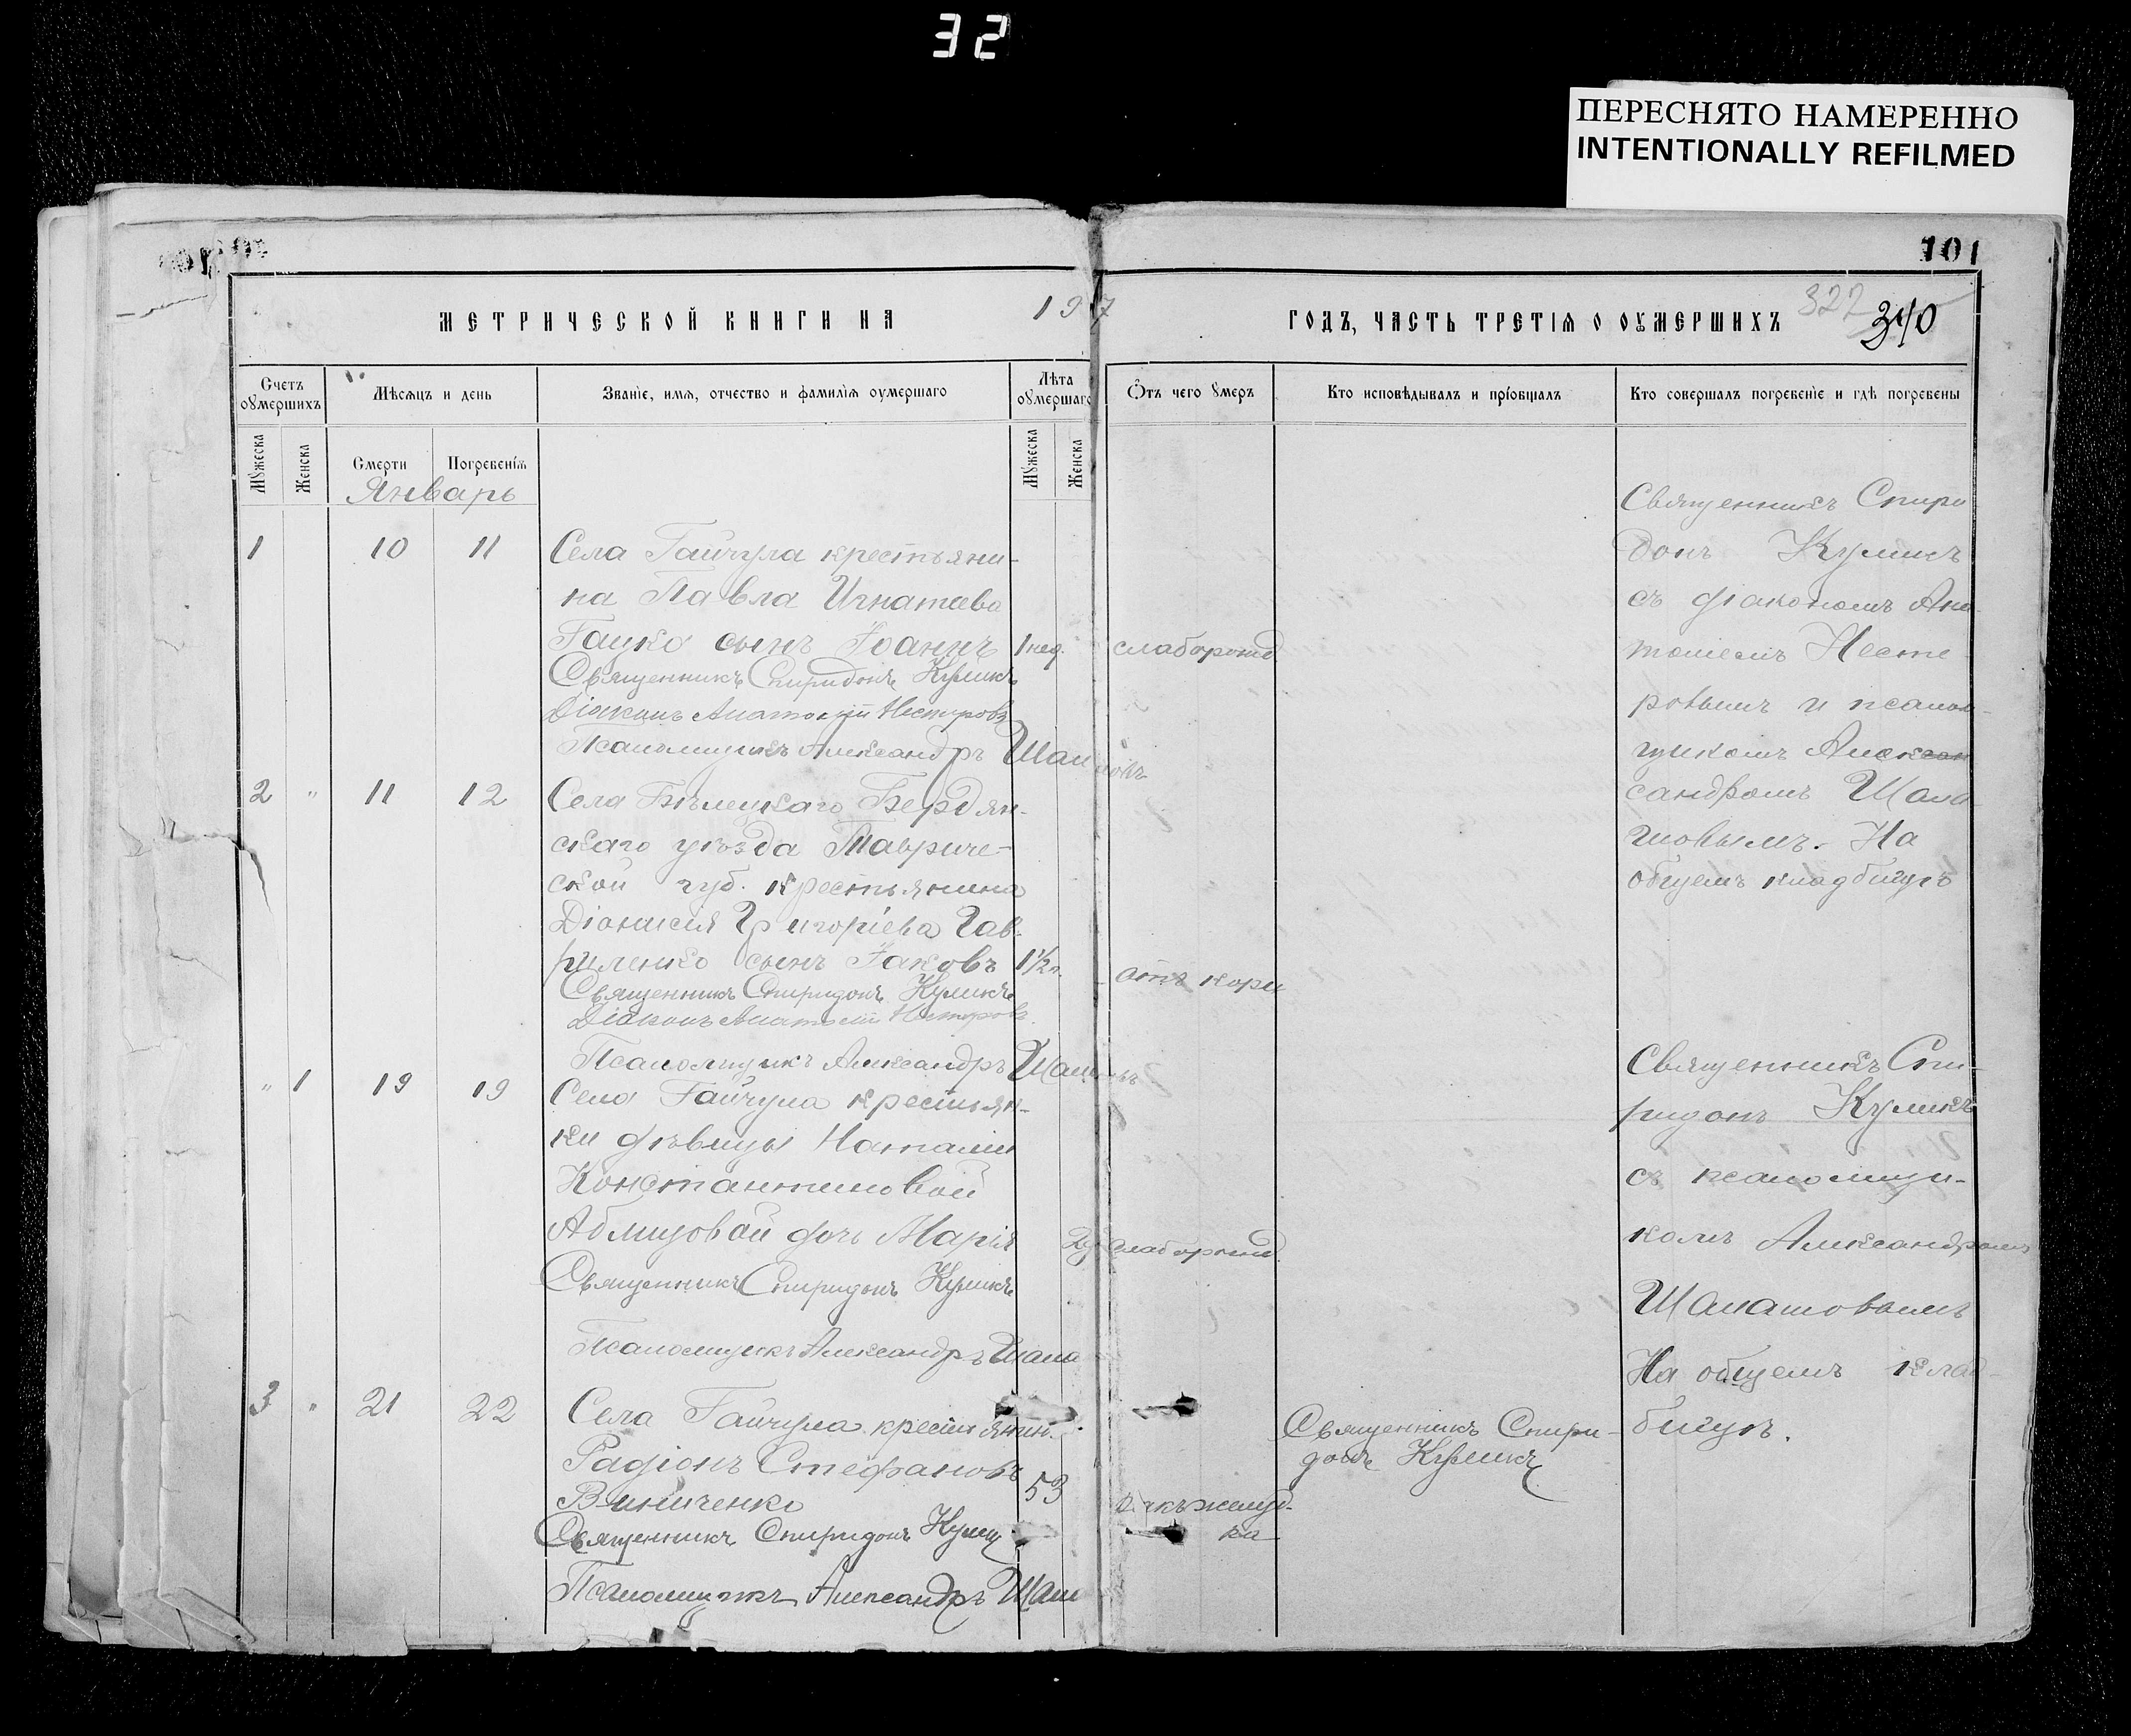 32
ПЕРЕСНЯТО НАМЕРЕННО
INTENTIONALLY REFILMED
101
МЕТРИЧЕСКОЙ КНИГИ НА 1907 ГОДЪ, ЧАСТЬ ТРЕТІЯ О ОУМЕРШИХЪ
322 340
Счетъ оумершихъ
Мѣсяцъ и день
Званіе, имя, отчество и фамилія оумершаго
Лѣта оумершаго
Ѿтъ чего оумеръ
Кто исповѣдывалъ и пріобщалъ
Кто совершалъ погребеніе и гдѣ погребены
Мужеска
Женска
Смерти
Погребенія
Мужеска
Женска
Январь
1 10 11 Села Гайчула крестьяни-
на Павла Игнатьева
Гауко сынъ Іоаннъ 1 нед. слаборожд
Священникъ Спиридонъ Куликъ
Діаконъ Анатолій Нестеровъ
Псаломщикъ Александръ
Священникъ Спири
донъ Куликъ
съ діакономъ Ана
толіемъ Несте
ровымъ и псалом-
щикомъ Алексан
сандромъ
На
общемъ кладбищѣ
2 " 11 12 Села Бѣлецкаго Бердян-
скаго уѣзда Тавриче-
ской губ. крестьянина
Діонисія Григоріева Гав-
риленко сынъ Іаковъ 1½ г. отъ кори
Священникъ Спиридонъ Куликъ
Діаконъ Анатолій Нестеровъ
Псаломщикъ Александръ
" 1 19 19 Села Гайчула крестьян-
ки дѣвицы Наталіи
Константиновой
дочь Марія слаборожд.
Священникъ Спиридонъ Куликъ
Псаломщикъ Александръ
Священникъ Спи-
ридонъ Куликъ
съ псаломщи-
комъ Александромъ
На общемъ клад-
бищѣ.
3 " 21 22 Села Гайчула крестьянин.
Радіонъ Стефановъ
Виниченко 53 ракъ желуд-
ка
Священникъ Спиридонъ Кулик
Псаломщикъ Александръ
Священникъ Спири-
донъ Куликъ